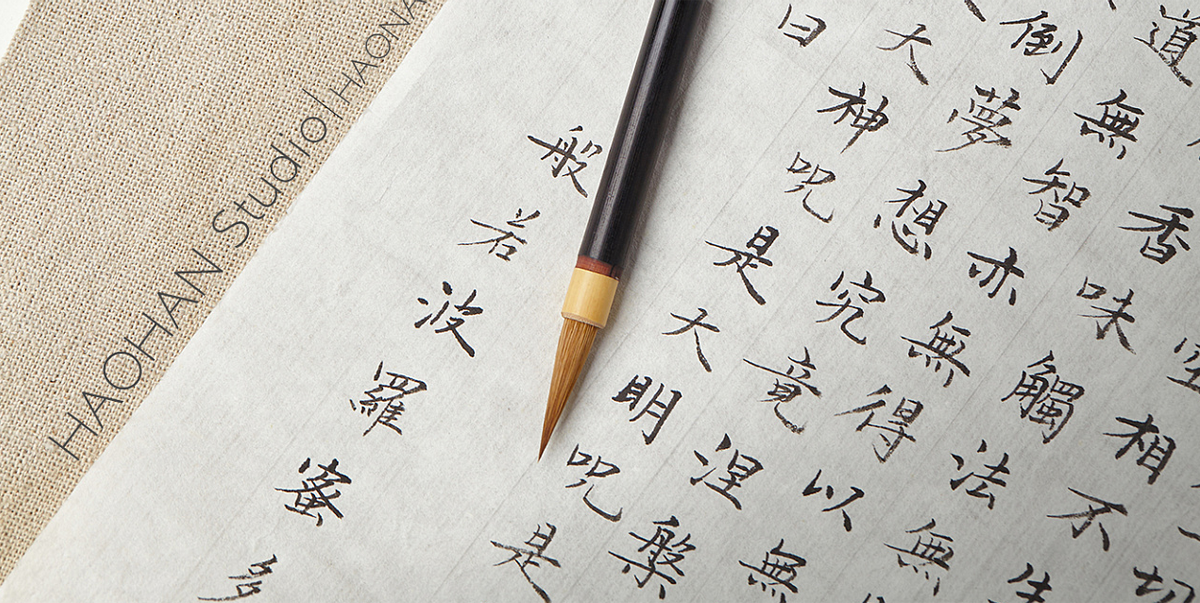 道無智亦無得以無
香味觸法無
空相不生
倒夢想究竟涅槃
大神咒是大明咒是
曰
般若波羅蜜多
HAOHAN Studio | HAONA